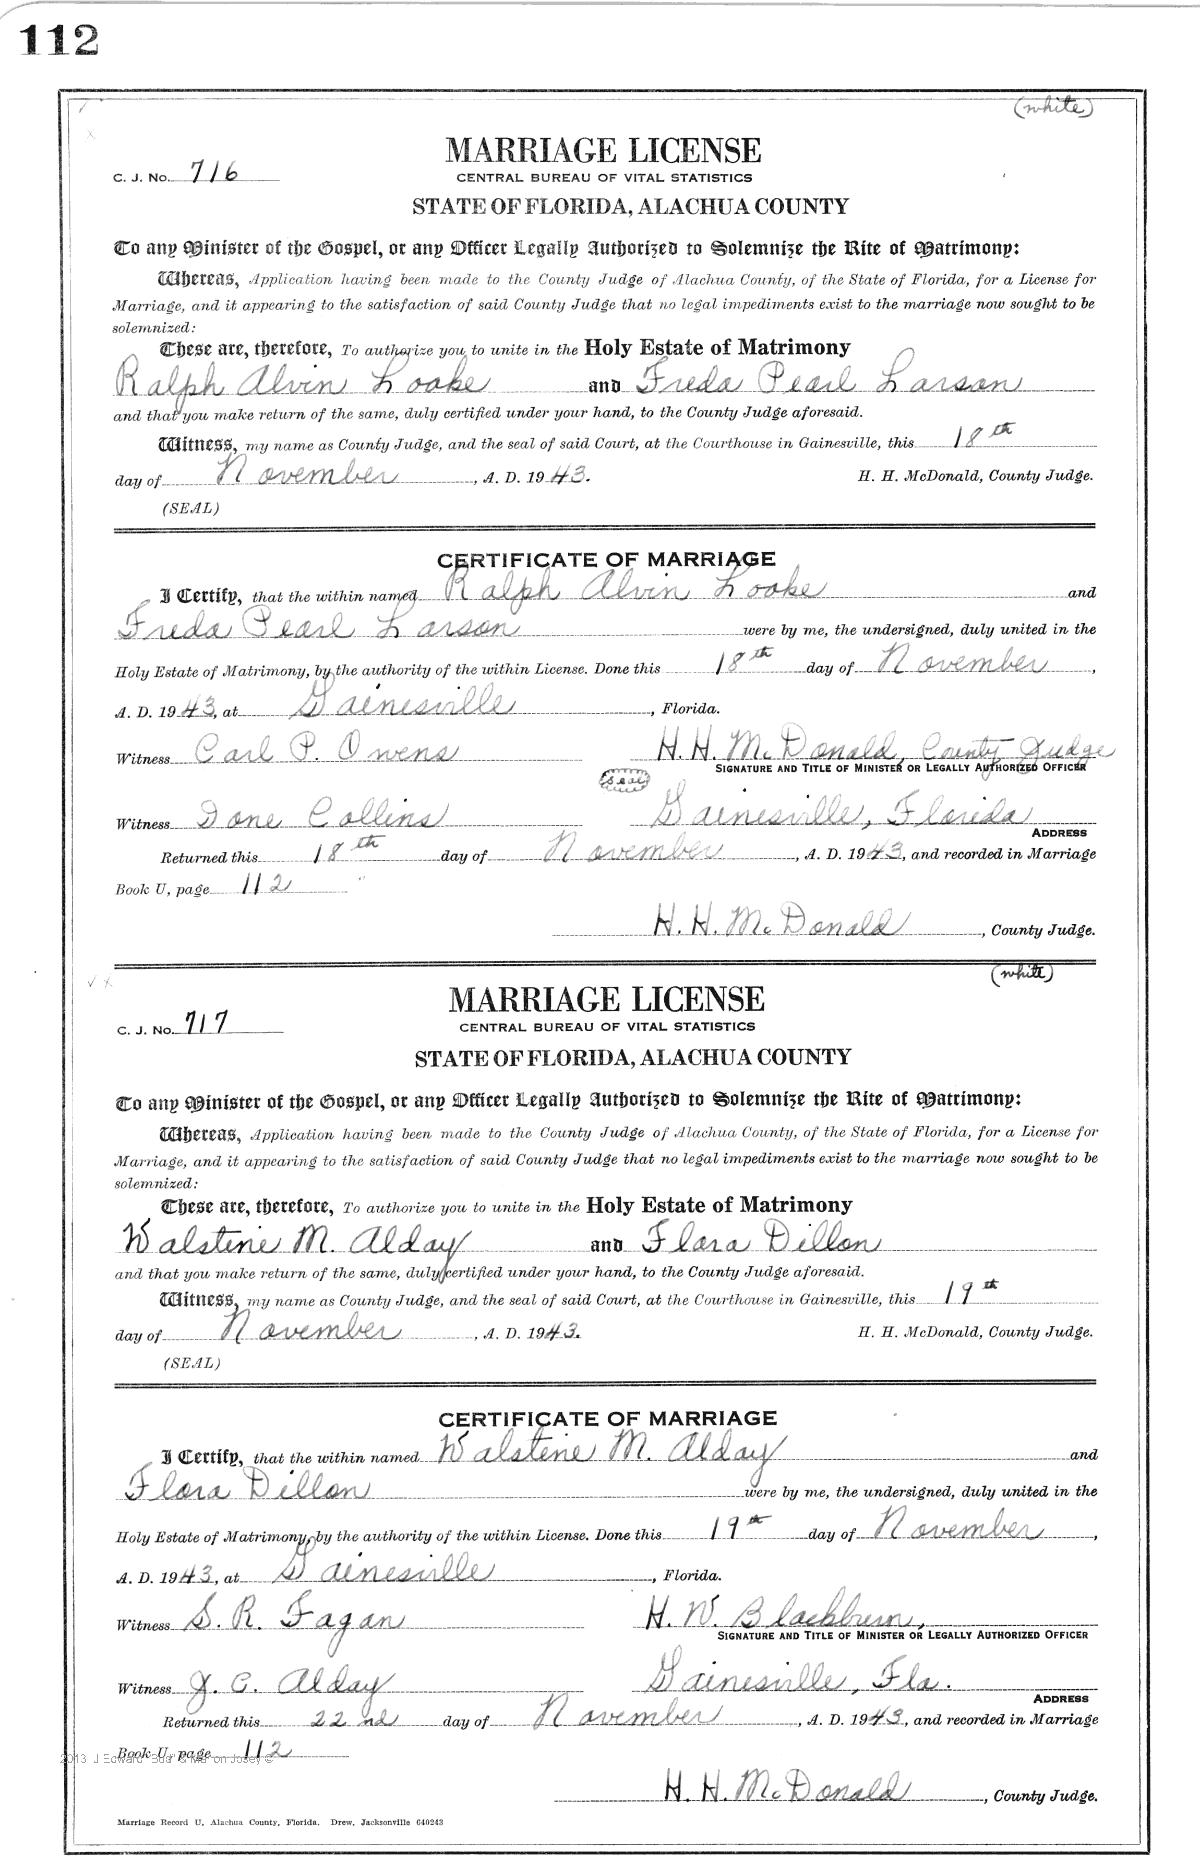 112
(white)
MARRIAGE LICENSE
C. J. No. 716
CENTRAL BUREAU OF VITAL STATISTICS
STATE OF FLORIDA, ALACHUA COUNTY
To any Minister of the Gospel, or any Officer Legally Authorized to Solemnize the Rite of Matrimony:
Whereas, Application having been made to the County Judge of Alachua County, of the State of Florida, for a License for
Marriage, and it appearing to the satisfaction of said County Judge that no legal impediments exist to the marriage now sought to be
solemnized:
These are, therefore, To authorize you to unite in the Holy Estate of Matrimony
Ralph Alvin Looke and Freda Pearl Larson
and that you make return of the same, duly certified under your hand, to the County Judge aforesaid.
Witness, my name as County Judge, and the seal of said Court, at the Courthouse in Gainesville, this 18th
day of November, A. D. 1943. H. H. McDonald, County Judge.
(SEAL)
CERTIFICATE OF MARRIAGE
I Certify, that the within named Ralph Alvin Looke and
Freda Pearl Larson were by me, the undersigned, duly united in the
Holy Estate of Matrimony, by the authority of the within License. Done this 18th day of November,
A. D. 1943, at Gainesville, Florida.
Witness Carl P. Owens H. H. McDonald, County Judge
SIGNATURE AND TITLE OF MINISTER OR LEGALLY AUTHORIZED OFFICER
(seal)
Witness Done Collins Gainesville, Florida
ADDRESS
Returned this 18th day of November, A. D. 1943, and recorded in Marriage
Book U, page 112
H. H. McDonald, County Judge.
(white)
MARRIAGE LICENSE
C. J. No. 717
CENTRAL BUREAU OF VITAL STATISTICS
STATE OF FLORIDA, ALACHUA COUNTY
To any Minister of the Gospel, or any Officer Legally Authorized to Solemnize the Rite of Matrimony:
Whereas, Application having been made to the County Judge of Alachua County, of the State of Florida, for a License for
Marriage, and it appearing to the satisfaction of said County Judge that no legal impediments exist to the marriage now sought to be
solemnized:
These are, therefore, To authorize you to unite in the Holy Estate of Matrimony
Walstine M. Alday and Flora Dillon
and that you make return of the same, duly certified under your hand, to the County Judge aforesaid.
Witness, my name as County Judge, and the seal of said Court, at the Courthouse in Gainesville, this 19th
day of November, A. D. 1943. H. H. McDonald, County Judge.
(SEAL)
CERTIFICATE OF MARRIAGE
I Certify, that the within named Walstine M. Alday and
Flora Dillon were by me, the undersigned, duly united in the
Holy Estate of Matrimony, by the authority of the within License. Done this 19th day of November,
A. D. 1943, at Gainesville, Florida.
Witness S. R. Fagan H. W. Blackburn,
SIGNATURE AND TITLE OF MINISTER OR LEGALLY AUTHORIZED OFFICER
Witness J. C. Alday Gainesville, Fla.
ADDRESS
Returned this 22nd day of November, A. D. 1943, and recorded in Marriage
Book U, page 112
2013 J Edward "Bud" & Marion Josey ©
H. H. McDonald, County Judge.
Marriage Record U, Alachua County, Florida. Drew, Jacksonville 640243